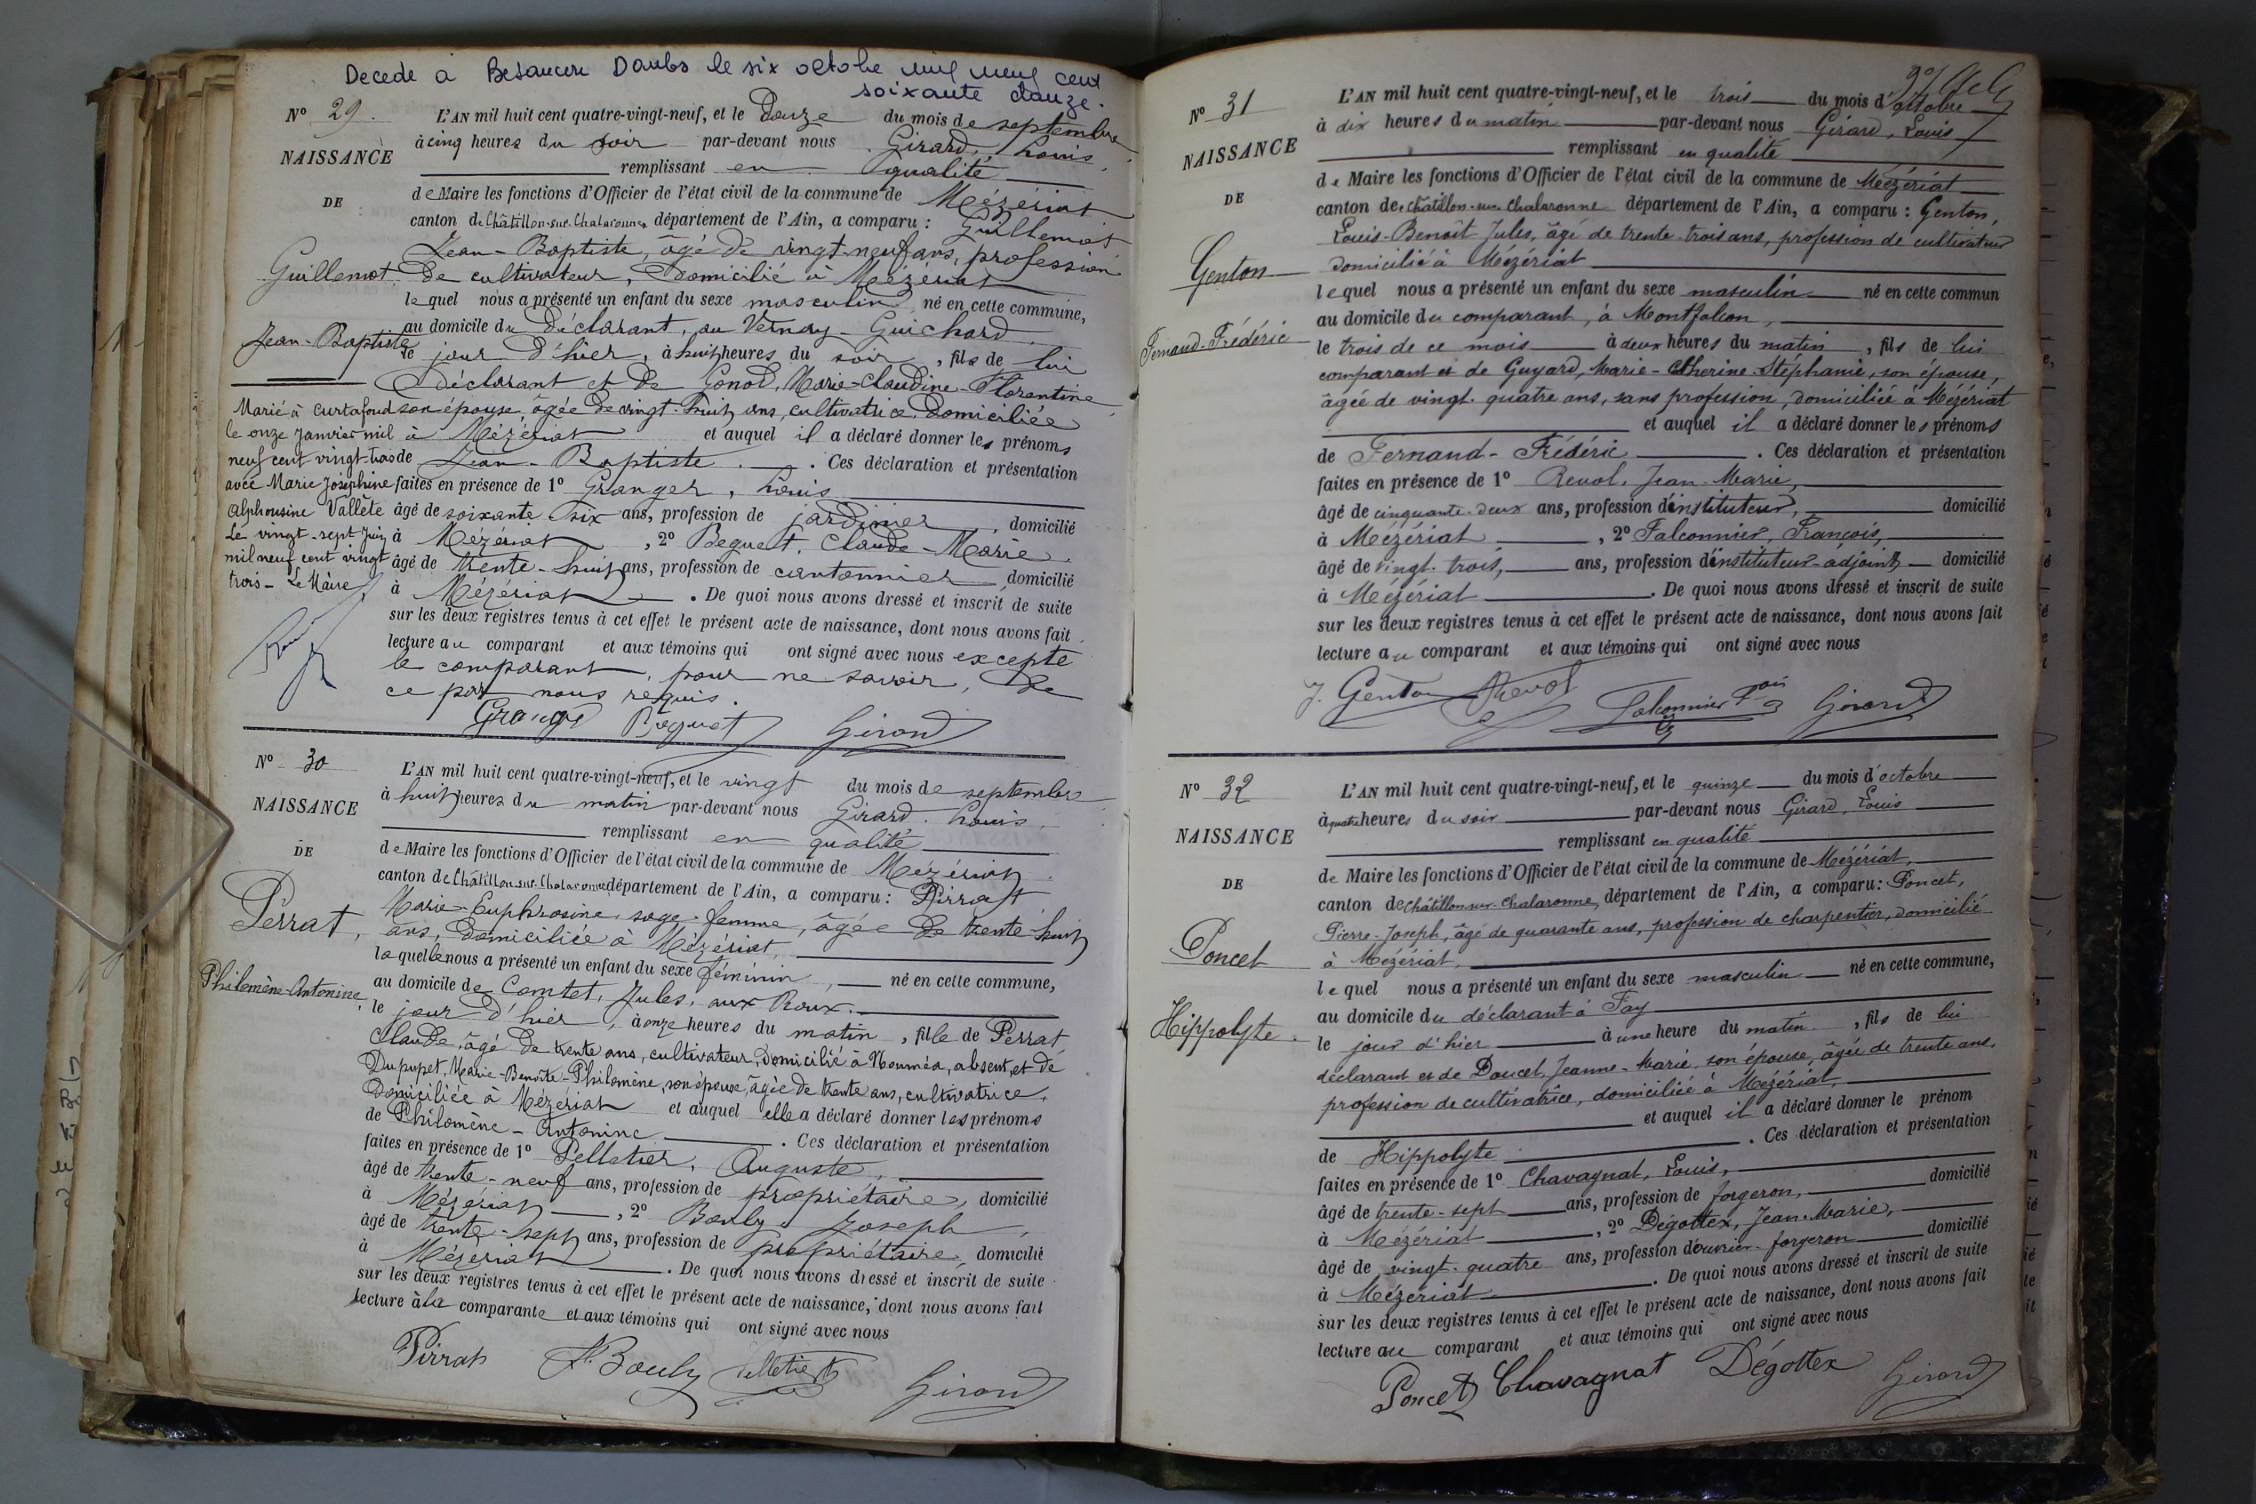 Decede a Besancon Doubs le six octobre mil neuf cent
soixante douze.
Nº 29.
NAISSANCE
DE
Guillemot
Jean-Baptiste
L'AN mil huit cent quatre-vingt-neuf, et le Douze du mois de septembre
à cinq heures du soir par-devant nous Girard, Louis,
remplissant en qualité
de Maire les fonctions d'Officier de l'état civil de la commune de Mézériat
canton de Châtillon-sur-Chalaronne, département de l'Ain, a comparu : Guillemot
Jean-Baptiste, âgé de vingt-neuf ans, profession
de cultivateur, domicilié à Mézériat
lequel nous a présenté un enfant du sexe masculin né en cette commune,
au domicile du déclarant, au Vernay-Guichard
le jour d'hier, à huit heures du soir, fils de lui
déclarant et de Gonod, Marie-Claudine-Florentine,
son épouse, âgée de vingt-huit ans, cultivatrice, domiciliée
à Mézériat et auquel il a déclaré donner les prénoms
de Jean-Baptiste. Ces déclaration et présentation
faites en présence de 1º Granger, Louis
âgé de soixante-six ans, profession de jardinier, domicilié
à Mézériat, 2º Beguet, Claude-Marie,
âgé de trente-huit ans, profession de cantonnier domicilié
à Mézériat. De quoi nous avons dressé et inscrit de suite
sur les deux registres tenus à cet effet le présent acte de naissance, dont nous avons fait
lecture au comparant et aux témoins qui ont signé avec nous excepté
le comparant, pour ne savoir, de
ce par nous requis.
Beguet Girard
Marié à Curtafond
le onze Janvier mil
neuf cent vingt-trois
avec Marie Joséphine
Alphonsine Vallète
Le vingt-sept Juin
mil neuf cent vingt
trois - Le Maire,
Nº 30
NAISSANCE
DE
Perrat,
Philomène-Antonine,
L'AN mil huit cent quatre-vingt-neuf, et le vingt du mois de septembre
à huit heures du matin par-devant nous Girard, Louis,
remplissant en qualité
de Maire les fonctions d'Officier de l'état civil de la commune de Mézériat
canton de Châtillon-sur-Chalaronne département de l'Ain, a comparu : Pirrat
Marie-Euphrosine, sage-femme, âgée de trente-huit
ans, domiciliée à Mézériat,
laquelle nous a présenté un enfant du sexe féminin, né en cette commune,
au domicile de Comtet, Jules, aux Roux.
le jour d'hier, à onze heures du matin, fille de Perrat
Claude, âgé de trente ans, cultivateur, domicilié à Nouméa, absent, et de
Dupupet, Marie-Benoîte-Philomène, son épouse, âgée de trente ans, cultivatrice,
domiciliée à Mézériat et auquel elle a déclaré donner les prénoms
de Philomène-Antonine. Ces déclaration et présentation
faites en présence de 1º Pelletier, Auguste,
âgé de trente-neuf ans, profession de propriétaire, domicilié
à Mézériat, 2º Bouly, Joseph,
âgé de trente-sept ans, profession de propriétaire, domicilié
à Mézériat. De quoi nous avons dressé et inscrit de suite
sur les deux registres tenus à cet effet le présent acte de naissance, dont nous avons fait
lecture à la comparante et aux témoins qui ont signé avec nous
Pirrat J. Bouly Pelletier Girard
Nº 31
NAISSANCE
DE
Genton
Fernand-Frédéric
L'AN mil huit cent quatre-vingt-neuf, et le trois du mois d'octobre
à dix heures du matin par-devant nous Girard, Louis
remplissant en qualité
de Maire les fonctions d'Officier de l'état civil de la commune de Mézériat
canton de Châtillon-sur-Chalaronne département de l'Ain, a comparu : Genton,
Louis-Benoît-Jules, âgé de trente-trois ans, profession de cultivateur
domicilié à Mézériat
lequel nous a présenté un enfant du sexe masculin né en cette commun
au domicile du comparant, à Montfalcon,
le trois de ce mois à deux heures du matin, fils de lui
comparant et de Guyard, Marie-Ctherine-Stéphanie, son épouse,
âgée de vingt-quatre ans, sans profession, domiciliée à Mézériat
et auquel il a déclaré donner les prénoms
de Fernand-Frédéric. Ces déclaration et présentation
faites en présence de 1º Revol, Jean-Marie,
âgé de cinquante-deux ans, profession d'instituteur, domicilié
à Mézériat, 2º Falconnier, François,
âgé de vingt-trois, ans, profession d'instituteur-adjoint domicilié
à Mézériat. De quoi nous avons dressé et inscrit de suite
sur les deux registres tenus à cet effet le présent acte de naissance, dont nous avons fait
lecture au comparant et aux témoins qui ont signé avec nous
J. Genton Revol Falconnier Fois Girard
Nº 32
NAISSANCE
DE
Poncet
Hippolyte.
L'AN mil huit cent quatre-vingt-neuf, et le quinze du mois d'octobre
à quatre heures du soir par-devant nous Girard, Louis
remplissant en qualité
de Maire les fonctions d'Officier de l'état civil de la commune de Mézériat,
canton de Châtillon-sur-Chalaronne, département de l'Ain, a comparu : Poncet,
Pierre-Joseph, âgé de quarante ans, profession de charpentier, domicilié
à Mézériat,
lequel nous a présenté un enfant du sexe masculin né en cette commune,
au domicile du déclarant à Fay
le jour d'hier à une heure du matin, fils de lui
déclarant et de Doucet, Jeanne-Marie, son épouse, âgée de trente ans,
profession de cultivatrice, domiciliée à Mézériat,
et auquel il a déclaré donner le prénom
de Hippolyte. Ces déclaration et présentation
faites en présence de 1º Chavagnat, Louis,
âgé de trente-sept ans, profession de forgeron, domicilié
à Mézériat, 2º Dégottex, Jean-Marie,
âgé de vingt-quatre ans, profession d'ouvrier-forgeron domicilié
à Mézériat. De quoi nous avons dressé et inscrit de suite
sur les deux registres tenus à cet effet le présent acte de naissance, dont nous avons fait
lecture au comparant et aux témoins qui ont signé avec nous
Poncet Chavagnat Dégottex Girard